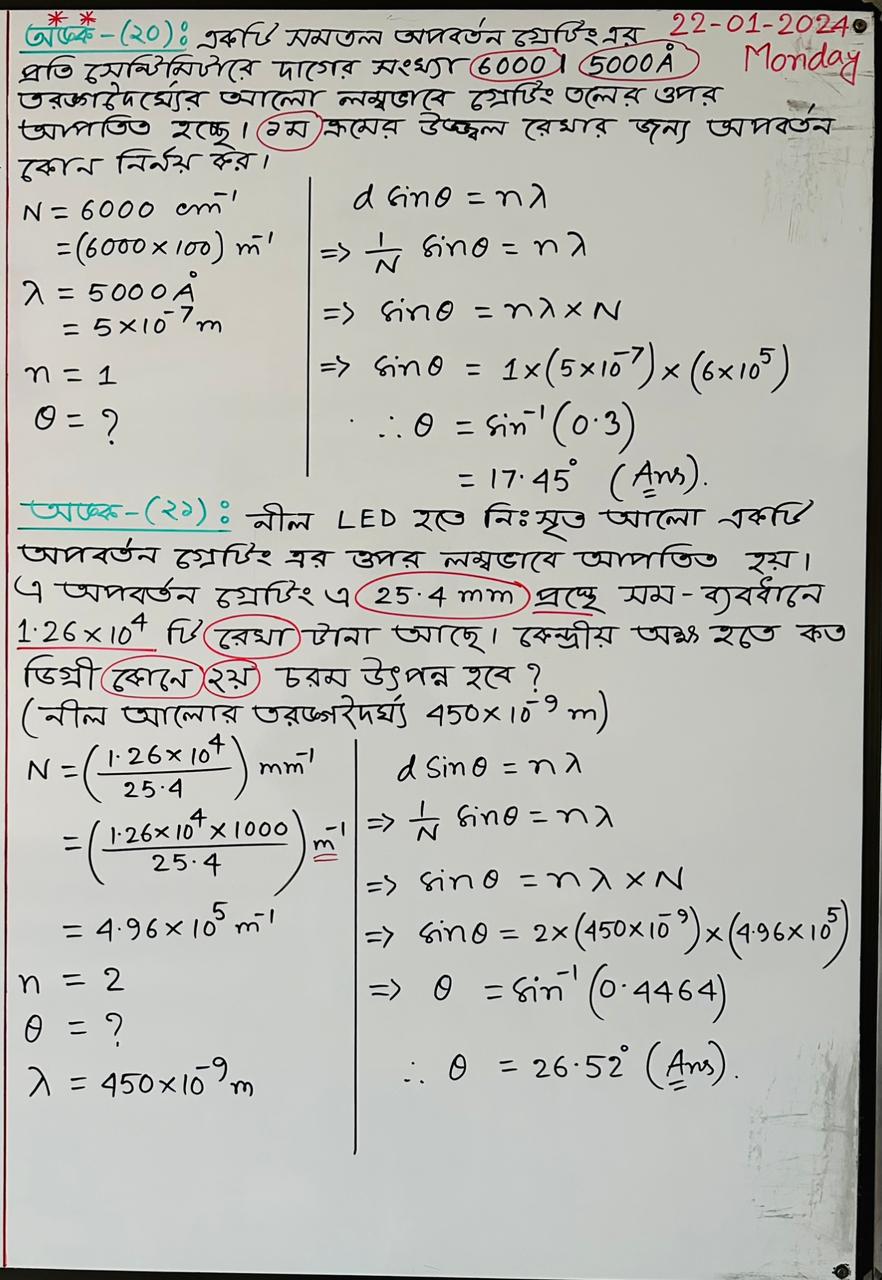 * *
অংক-(২০): একটি সমতল অপবর্তন গ্রেটিং এর 22-01-2024
Monday
প্রতি সেন্টিমিটারে দাগের সংখ্যা 6000। 5000Å
তরঙ্গদৈর্ঘ্যের আলো লম্বভাবে গ্রেটিং তলের ওপর
আপতিত হচ্ছে। ১ম ক্রমের উজ্জ্বল রেখার জন্য অপবর্তন
কোন নির্নয় কর।
N = 6000 cm⁻¹
= (6000×100) m⁻¹
λ = 5000Å
= 5×10⁻⁷ m
n = 1
θ = ?
d sinθ = nλ
=> 1/N sinθ = nλ
=> sinθ = nλ×N
=> sinθ = 1×(5×10⁻⁷)×(6×10⁵)
∴ θ = sin⁻¹(0.3)
= 17.45° (Ans).
অংক-(২১): নীল LED হতে নিঃসৃত আলো একটি
অপবর্তন গ্রেটিং এর ওপর লম্বভাবে আপতিত হয়।
এ অপবর্তন গ্রেটিং এ 25.4 mm প্রস্থে সম-ব্যবধানে
1.26×10⁴ টি রেখা টানা আছে। কেন্দ্রীয় অক্ষ হতে কত
ডিগ্রী কোনে ২য় চরম উৎপন্ন হবে?
(নীল আলোর তরঙ্গদৈর্ঘ্য 450×10⁻⁹ m)
N = (1.26×10⁴/25.4) mm⁻¹
= (1.26×10⁴×1000/25.4) m⁻¹
= 4.96×10⁵ m⁻¹
n = 2
θ = ?
λ = 450×10⁻⁹ m
d sinθ = nλ
=> 1/N sinθ = nλ
=> sinθ = nλ×N
=> sinθ = 2×(450×10⁻⁹)×(4.96×10⁵)
=> θ = sin⁻¹(0.4464)
∴ θ = 26.52° (Ans).